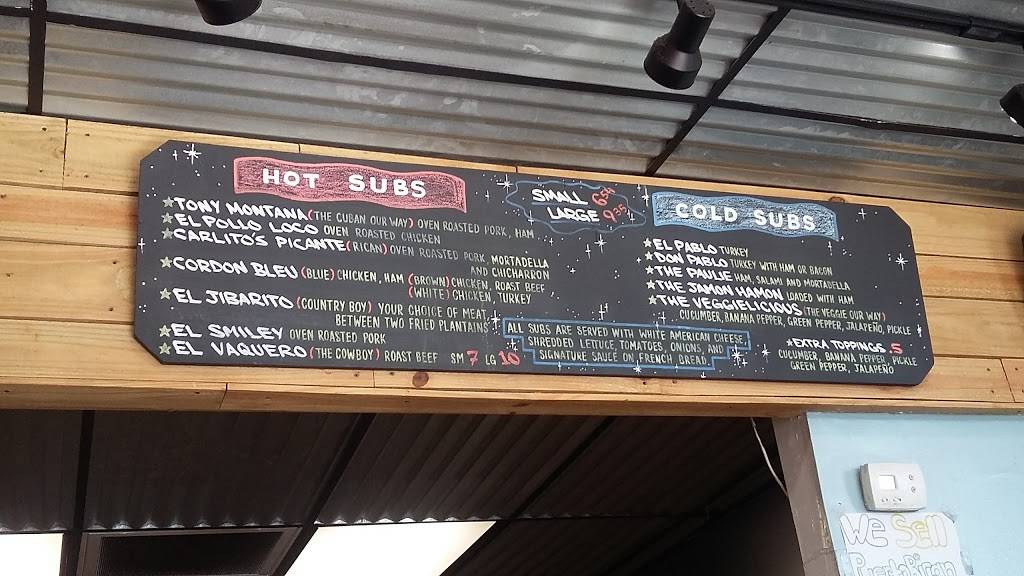 HOT SUBS
★TONY MONTANA (THE CUBAN OUR WAY) OVEN ROASTED PORK, HAM
★EL POLLO LOCO OVEN ROASTED CHICKEN
★CARLITO'S PICANTE (RICAN) OVEN ROASTED PORK, MORTADELLA
AND CHICHARRON
★CORDON BLEU (BLUE) CHICKEN, HAM (BROWN) CHICKEN, ROAST BEEF
(WHITE) CHICKEN, TURKEY
★EL JIBARITO (COUNTRY BOY) YOUR CHOICE OF MEAT
BETWEEN TWO FRIED PLANTAINS
★EL SMILEY OVEN ROASTED PORK
★EL VAQUERO (THE COWBOY) ROAST BEEF SM 7 LG 10
SMALL
LARGE
ALL SUBS ARE SERVED WITH WHITE AMERICAN CHEESE,
SHREDDED LETTUCE, TOMATOES, ONIONS, AND
SIGNATURE SAUCE ON FRENCH BREAD
COLD SUBS
★EL PABLO TURKEY
★DON PABLO TURKEY WITH HAM OR BACON
★THE PAULIE HAM, SALAMI AND MORTADELLA
★THE JAMON HAMON LOADED WITH HAM
★THE VEGGIELICIOUS (THE VEGGIE OUR WAY)
CUCUMBER, BANANA PEPPER, GREEN PEPPER, JALAPEÑO, PICKLE
★EXTRA TOPPINGS .5
CUCUMBER, BANANA PEPPER, PICKLE
GREEN PEPPER, JALAPEÑO
We Sell
Puerto Rican